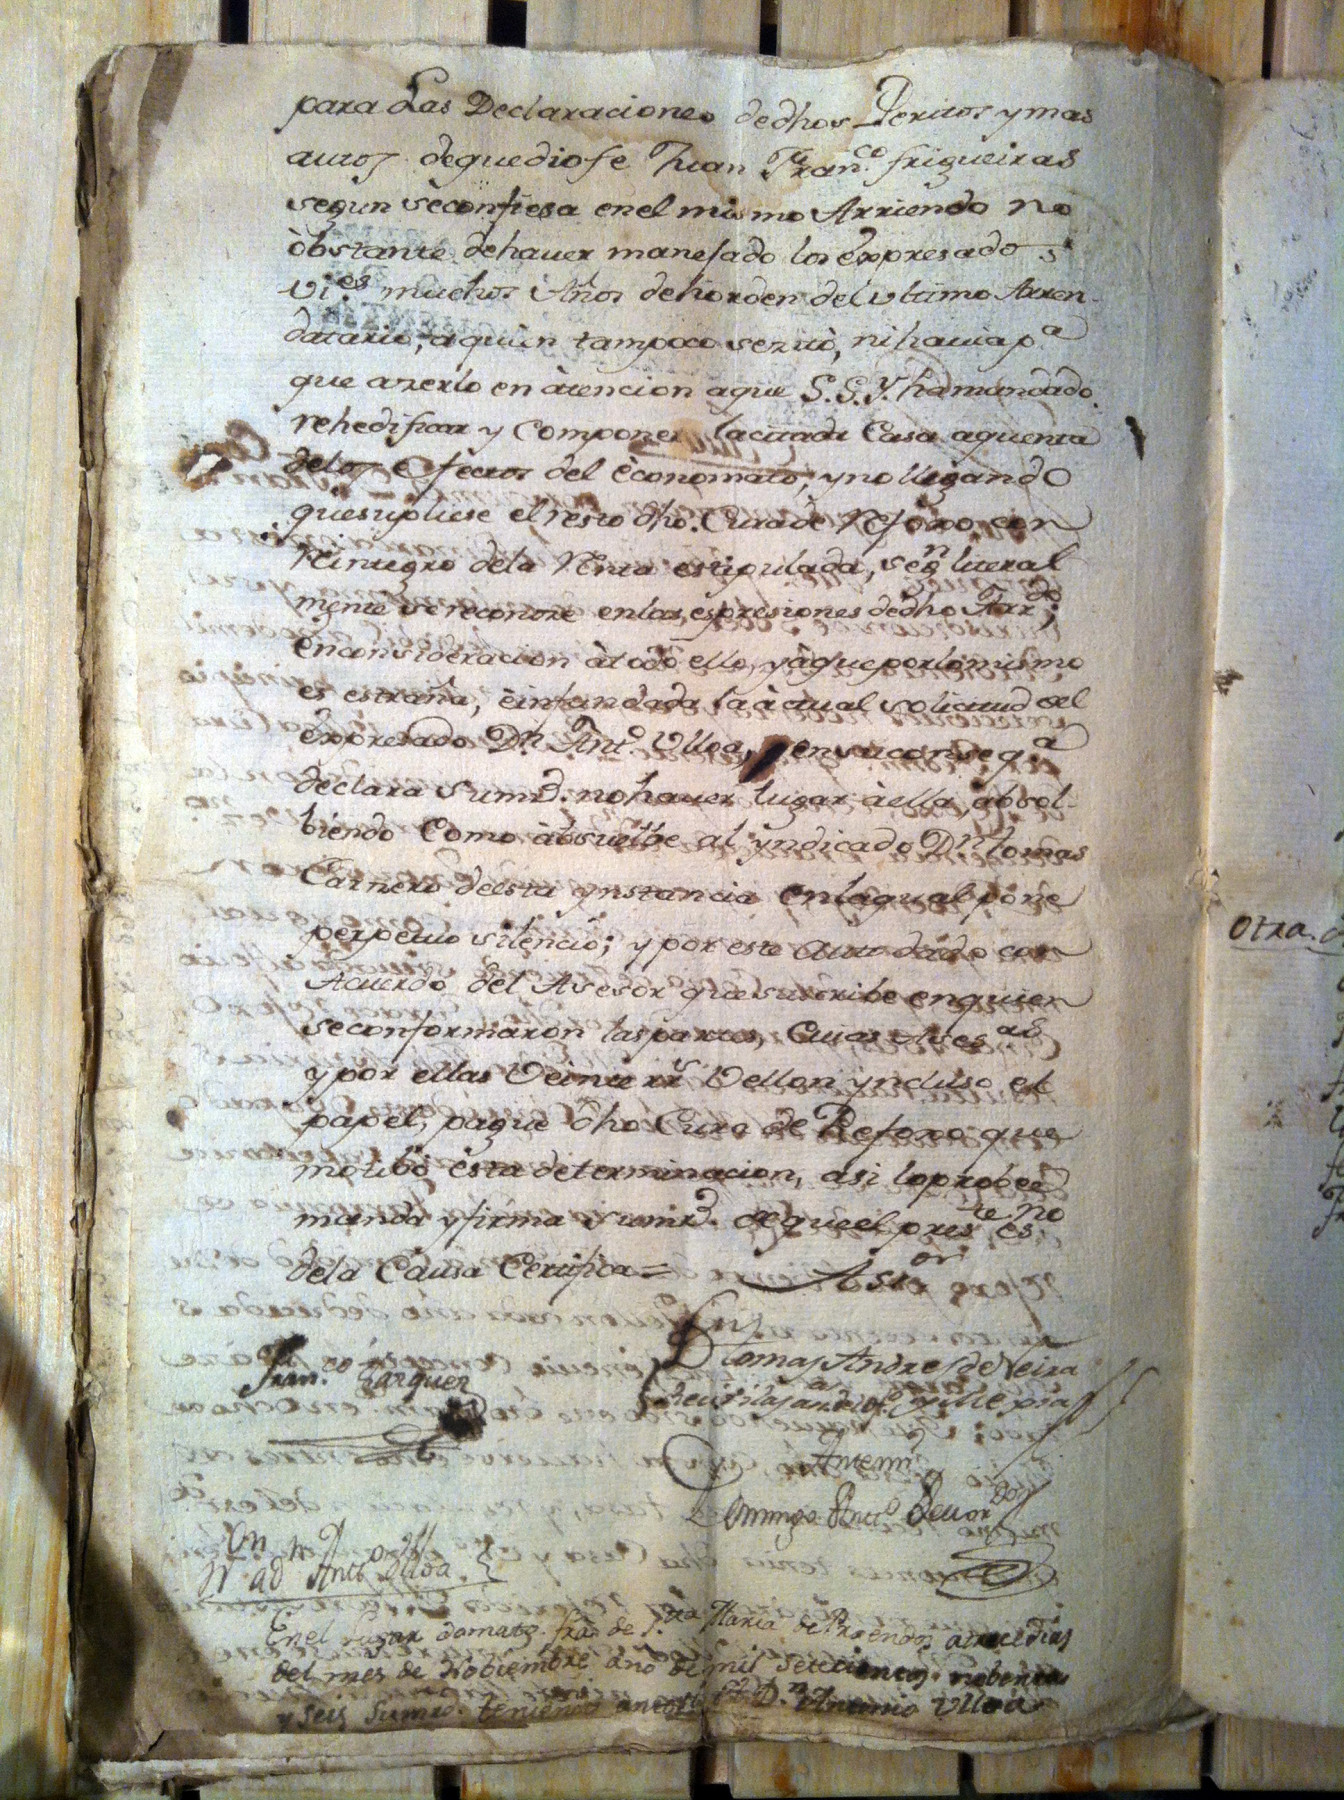 para Las Declaraciones dedhos Peritos y mas
autos dequediofe Juan Fran.co frigueiras
segun seconfiesa enel mismo Arriendo no
òbstante dehauer manejado los expresados
vi.es muchos Años dehorden del vltimo Arren-
datario, aquien tampoco seruiò, ni hauia p.a
que azerlo en àtencion aque S.S.Y. ha mandado
rehedificar y componer lacitada Casa aquenta
delos efectos del èconomato, y no llegando
quesupliese el resto dho. Cura de Refoxo con
Reintegro dela Renta estipulada, seg.n literal
mente sereconoze enlas espresiones dedho Arr.do;
enconsideracion àtodo ello, yàqueporlomismo
es estraña, èinfundada la àctual solicitud del
expresado D.n Ant.o Ulloa, ensuconseq.a
declara sumrd. nohauer lugar àella absol-
biendo Como àbsuelbe al yndicado D.n tomas
Carnero deesta ynstancia enlaqual pone
perpetuo silencio; y por este auto dado con
Acuerdo del Asesor quesuscribe enquien
seconformaron laspartes, Cuias Ases.as
y por ellas Veinte rr.s Vellon yncluso el
papel, pague dho Cura de Refoxo que
motibò esta determinacion, asi loprobee
manda yfirma sumrd. dequeel pres.te es.no
dela Causa Certifica=
Asr.or
Fran.co Barquer
D tomas Andres de Neira
Antemi
Domingo Ant.o
On.
Nt ad Ant.o Ulloa.
Enel lugar domato fra de S.ta Maria de Proendos atrecedias
del mes de Nobiembre año de mil setecientos nobenta
y seis Sumrd. teniendo antesi a D.n Antonio Ulloa
Otra.